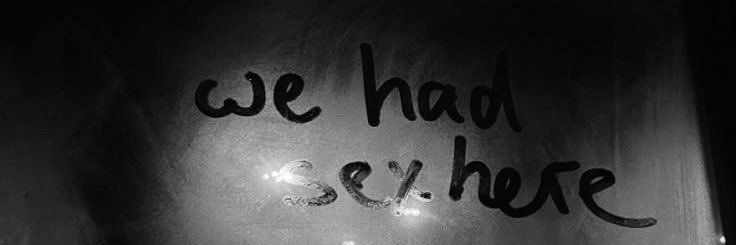 we had
sex here